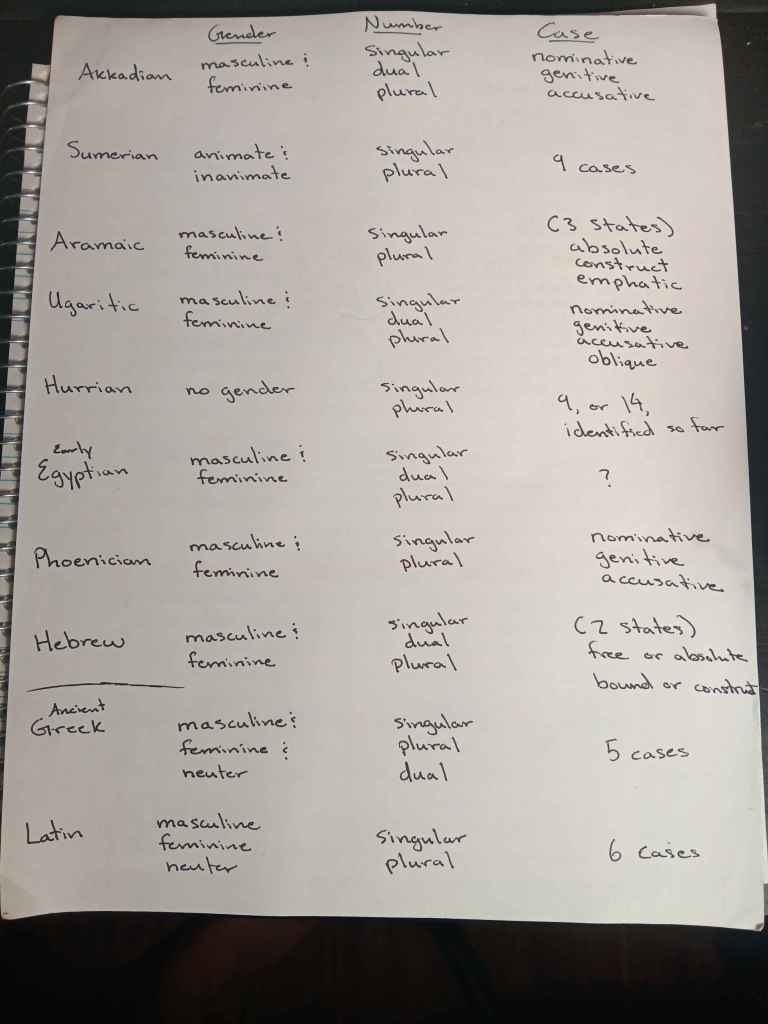 Gender Number Case
Akkadian masculine & singular nominative
feminine dual genitive
plural accusative
Sumerian animate & singular 9 cases
inanimate plural
Aramaic masculine & singular (3 states)
feminine plural absolute
construct
emphatic
Ugaritic masculine & singular nominative
feminine dual genitive
plural accusative
oblique
Hurrian no gender singular 9, or 14,
plural identified so far
Early
Egyptian masculine & singular ?
feminine dual
plural
Phoenician masculine & singular nominative
feminine plural genitive
accusative
Hebrew masculine & singular (2 states)
feminine dual free or absolute
plural bound or construt
Ancient
Greek masculine & singular 5 cases
feminine & plural
neuter dual
Latin masculine singular 6 cases
feminine plural
neuter